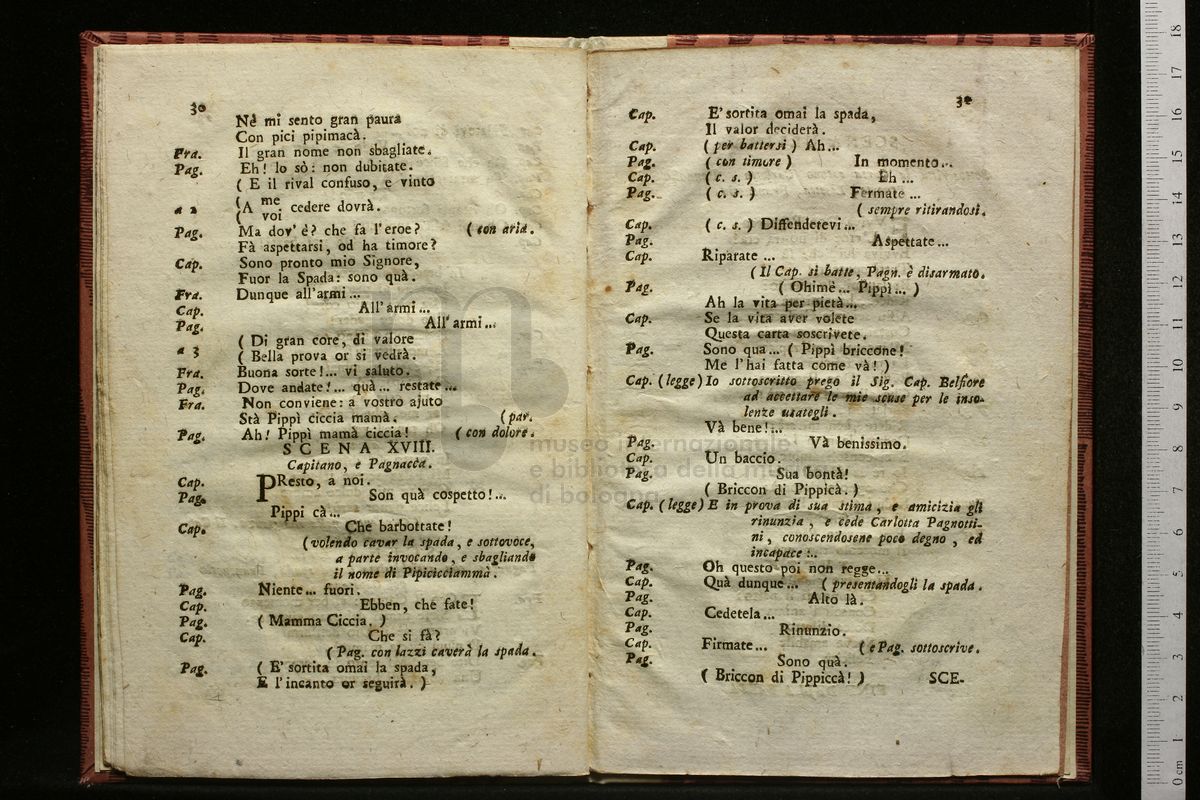 30
Nè mi sento gran paura
Con pici pipimacà.
Fra. Il gran nome non sbagliate.
Pag. Eh! lo sò: non dubitate.
( E il rival confuso, e vinto
a 2 (A me voi cedere dovrà.
Pag. Ma dov' è? che fa l'eroe? ( con aria.
Fà aspettarsi, od ha timore?
Cap. Sono pronto mio Signore,
Fuor la Spada: sono quà.
Fra. Dunque all'armi...
Cap. All'armi...
Pag. All'armi...
a 3 ( Di gran core, di valore
( Bella prova or si vedrà.
Fra. Buona sorte!... vi saluto.
Pag. Dove andate!... quà... restate...
Fra. Non conviene: a vostro ajuto
Stà Pippì ciccia mamà. (par.
Pag. Ah! Pippì mamà ciccia! ( con dolore.
SCENA XVIII.
Capitano, e Pagnacca.
Cap. PResto, a noi.
Pag. Son quà cospetto!...
Pippi cà...
Cap. Che barbottate!
(volendo cavar la spada, e sottovoce,
a parte invocando, e sbagliando
il nome di Pipicicciammà.
Pag. Niente... fuori.
Cap. Ebben, che fate!
Pag. ( Mamma Ciccia. )
Cap. Che si fà?
( Pag. con lazzi caverà la spada.
Pag. ( E' sortita omai la spada,
E l'incanto or seguirà. )
Cap. E' sortita omai la spada,
Il valor deciderà.
Cap. ( per battersi ) Ah...
Pag. ( con timore ) In momento...
Cap. ( c. s. ) Eh...
Pag. ( c. s. ) Fermate...
( sempre ritirandosi.
Cap. ( c. s. ) Diffendetevi...
Pag. Aspettate...
Cap. Riparate...
( Il Cap. si batte, Pagn. è disarmato.
Pag. ( Ohimè... Pippì... )
Ah la vita per pietà...
Cap. Se la vita aver volete
Questa carta soscrivete.
Pag. Sono qua... ( Pippì briccone!
Me l'hai fatta come và! )
Cap. (legge) Io sottoscritto prego il Sig. Cap. Belfiore
ad accettare le mie scuse per le inso-
lenze usategli.
Và bene!...
Pag. Và benissimo.
Cap. Un baccio.
Pag. Sua bontà!
( Briccon di Pippicà. )
Cap. (legge) E in prova di sua stima, e amicizia gli
rinunzia, e cede Carlotta Pagnotti-
ni, conoscendosene poco degno, ed
incapace...
Pag. Oh questo poi non regge...
Cap. Quà dunque... ( presentandogli la spada.
Pag. Alto là.
Cap. Cedetela...
Pag. Rinunzio.
Cap. Firmate... ( e Pag. sottoscrive.
Pag. Sono quà.
( Briccon di Pippiccà! ) SCE-
museo internazionale
e biblioteca della musica
di bologna